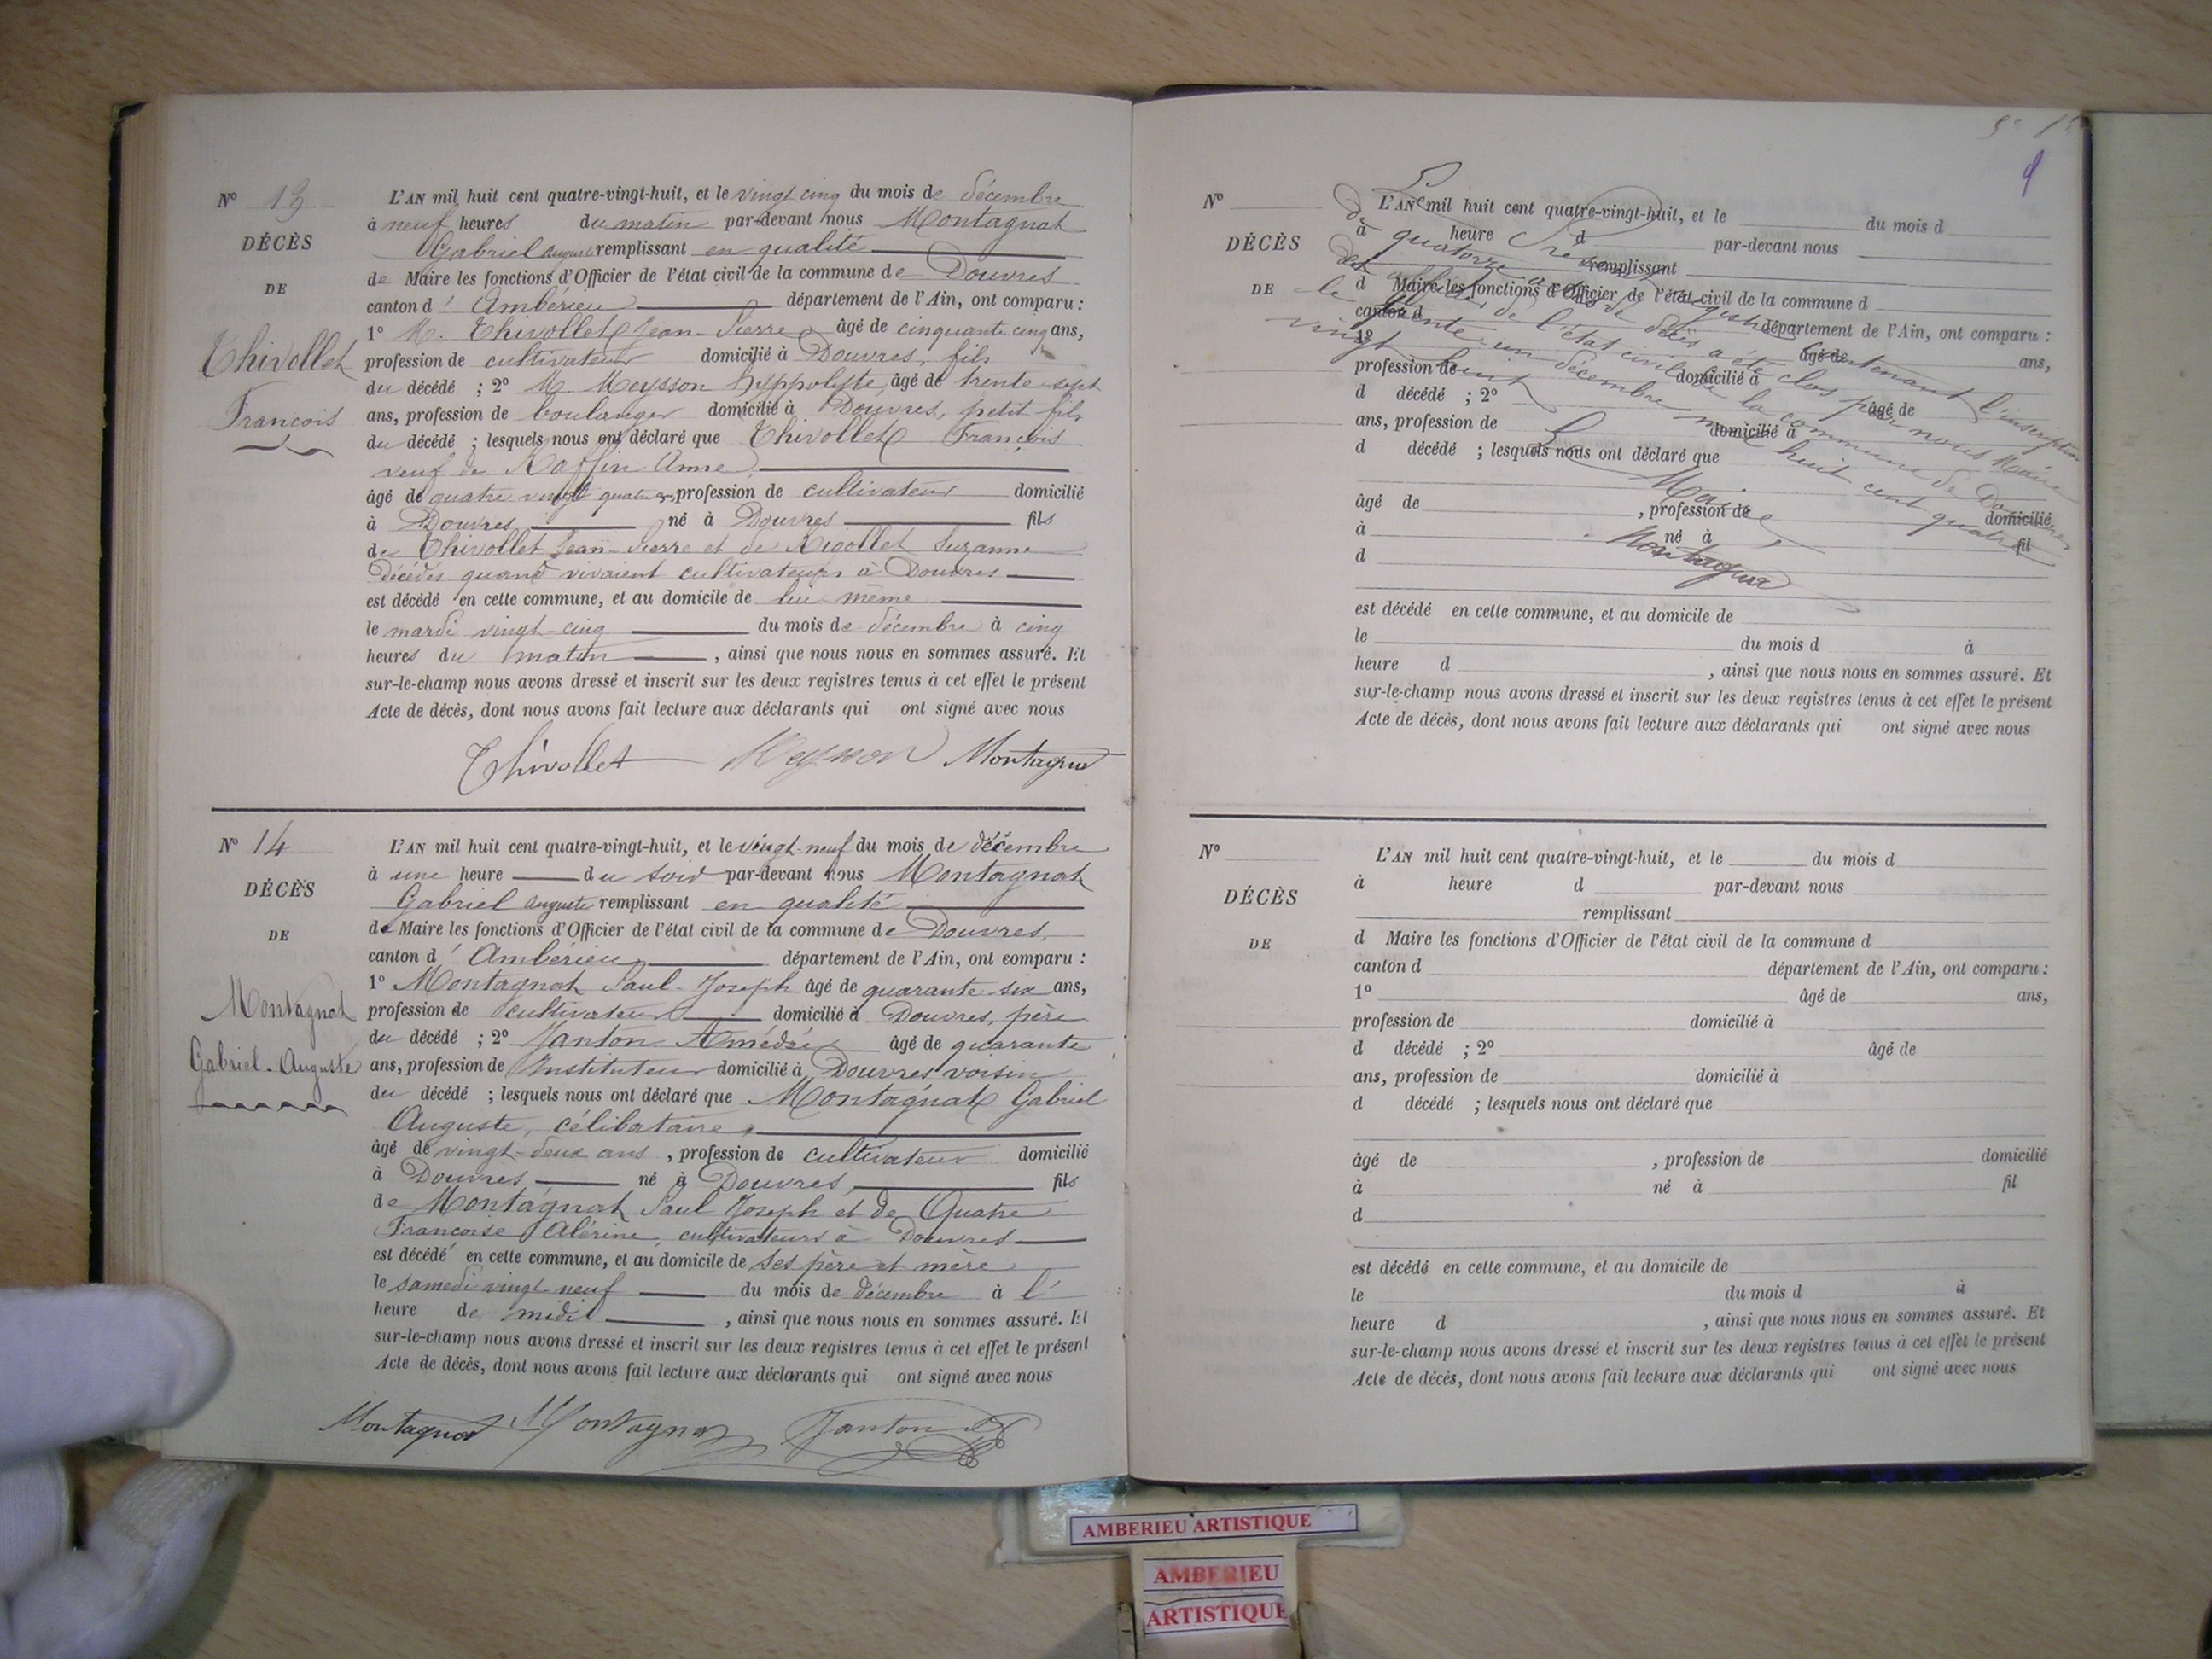 N° 13
DÉCÈS
DE
Thivollet
François
L'AN mil huit cent quatre-vingt-huit, et le vingt cinq du mois de décembre
à neuf heures du matin par-devant nous Montagnat
Gabriel Auguste remplissant en qualité
de Maire les fonctions d'Officier de l'état civil de la commune de Douvres
canton d' Ambérieu département de l'Ain, ont comparu :
1° M. Thivollet Jean-Pierre âgé de cinquante cinq ans,
profession de cultivateur domicilié à Douvres, fils
du décédé ; 2° M. Meysson Hyppolyte, âgé de trente-sept
ans, profession de boulanger domicilié à Douvres, petit fils
du décédé ; lesquels nous ont déclaré que Thivollet François
veuf de Roffin Anne
âgé de quatre vingt quatre, profession de cultivateur domicilié
à Douvres né à Douvres fils
de Thivollet Jean-Pierre et de Rigollet Suzanne
Décédés quand vivaient cultivateurs à Douvres
est décédé en cette commune, et au domicile de lui-même
le mardi vingt-cinq du mois de décembre à cinq
heures du matin , ainsi que nous nous en sommes assuré. Et
sur-le-champ nous avons dressé et inscrit sur les deux registres tenus à cet effet le présent
Acte de décès, dont nous avons fait lecture aux déclarants qui ont signé avec nous
Thivollet Meysson Montagnat
N° 14
DÉCÈS
DE
Montagnat
Gabriel-Auguste
L'AN mil huit cent quatre-vingt-huit, et le vingt-neuf du mois de décembre
à une heure du soir par-devant nous Montagnat
Gabriel Auguste remplissant en qualité
de Maire les fonctions d'Officier de l'état civil de la commune de Douvres
canton d' Ambérieu département de l'Ain, ont comparu :
1° Montagnat Paul-Joseph âgé de quarante-six ans,
profession de cultivateur domicilié à Douvres, père
du décédé ; 2° Janton Amédée âgé de quarante
ans, profession de Instituteur domicilié à Douvres voisin
du décédé ; lesquels nous ont déclaré que Montagnat Gabriel
Auguste, célibataire,
âgé de vingt-deux ans , profession de cultivateur domicilié
à Douvres né à Douvres, fils
de Montagnat Paul Joseph et de Quatre
Françoise Alérine, cultivateurs à Douvres
est décédé en cette commune, et au domicile de ses père et mère
le samedi vingt neuf du mois de décembre à l'
heure de midi , ainsi que nous nous en sommes assuré. Et
sur-le-champ nous avons dressé et inscrit sur les deux registres tenus à cet effet le présent
Acte de décès, dont nous avons fait lecture aux déclarants qui ont signé avec nous
Montagnat Montagnat Janton
9
Le présent registre contenant l'inscription
de quatorze actes de décès a été clos par nous Maire
de l'état civil de la commune de Douvres
le trente un décembre mil huit cent quatre
vingt huit
Le Maire,
Montagnat
N°
DÉCÈS
DE
L'AN mil huit cent quatre-vingt-huit, et le du mois d
à heure d par-devant nous
remplissant
d Maire les fonctions d'Officier de l'état civil de la commune d
canton d département de l'Ain, ont comparu :
1° âgé de ans,
profession de domicilié à
d décédé ; 2° âgé de
ans, profession de domicilié à
d décédé ; lesquels nous ont déclaré que
âgé de , profession de domicilié
à né à fil
d
est décédé en cette commune, et au domicile de
le du mois d à
heure d , ainsi que nous nous en sommes assuré. Et
sur-le-champ nous avons dressé et inscrit sur les deux registres tenus à cet effet le présent
Acte de décès, dont nous avons fait lecture aux déclarants qui ont signé avec nous
N°
DÉCÈS
DE
L'AN mil huit cent quatre-vingt-huit, et le du mois d
à heure d par-devant nous
remplissant
d Maire les fonctions d'Officier de l'état civil de la commune d
canton d département de l'Ain, ont comparu :
1° âgé de ans,
profession de domicilié à
d décédé ; 2° âgé de
ans, profession de domicilié à
d décédé ; lesquels nous ont déclaré que
âgé de , profession de domicilié
à né à fil
d
est décédé en cette commune, et au domicile de
le du mois d à
heure d , ainsi que nous nous en sommes assuré. Et
sur-le-champ nous avons dressé et inscrit sur les deux registres tenus à cet effet le présent
Acte de décès, dont nous avons fait lecture aux déclarants qui ont signé avec nous
AMBERIEU ARTISTIQUE
AMBERIEU
ARTISTIQUE